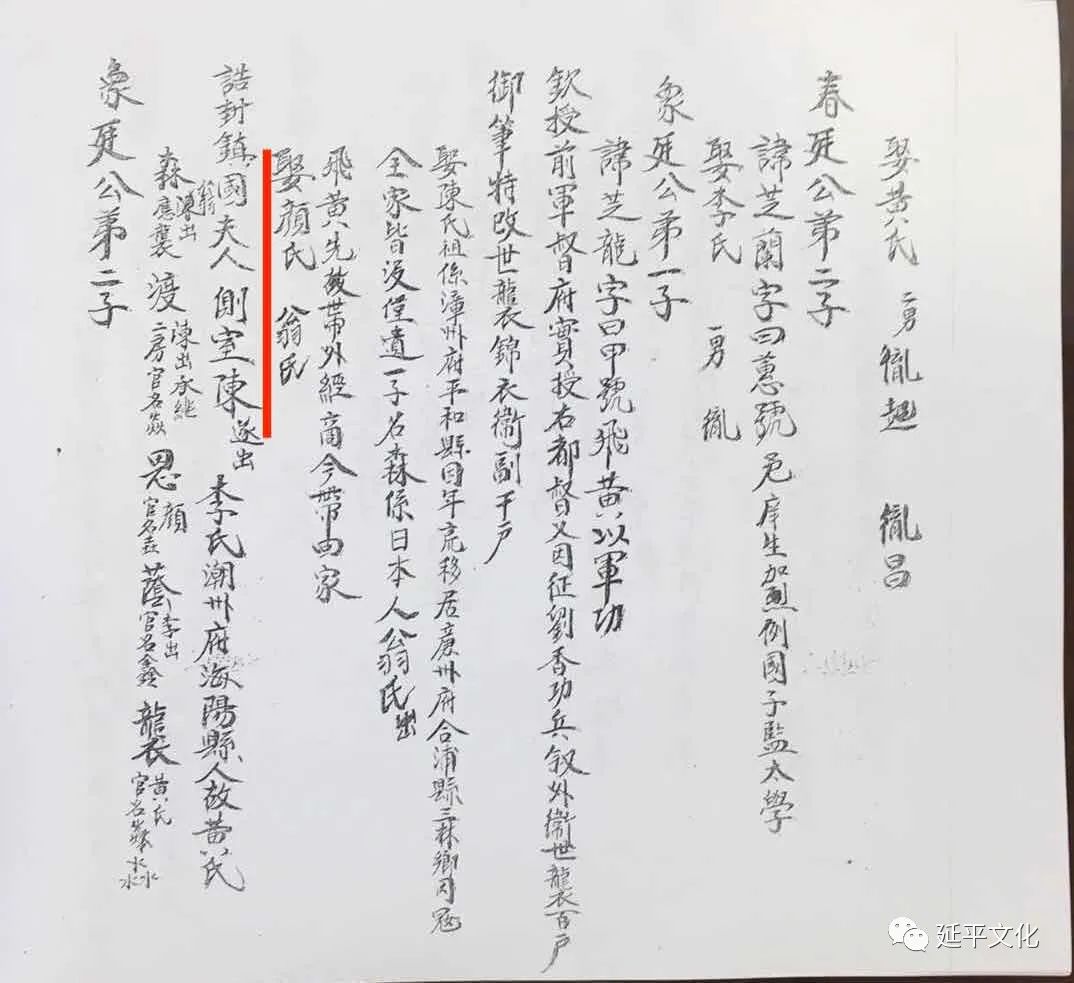 娶黃氏 二男 胤起 胤昌
春廷公第二子
諱芝蘭字曰蕙號 邑庠生加 例國子監太學
娶李氏 一男 胤
象廷公第一子
諱芝龍字曰甲號飛黃以軍功
欽授前軍督府實授右都督又因征劉香功兵叙外衛世襲百戶
御筆特改世襲錦衣衛副千戶
娶陳氏祖係漳州府平和縣因年荒移居廣州府合浦縣三林鄉因寇
全家皆沒僅遺一子名森係日本人翁氏出
飛黃先 帶外經商今帶回家
娶顏氏 翁氏
誥封鎮國夫人側室陳 出 李氏潮州府海陽縣人故黃氏
森 翁出 應襲 渡 陳出承繼二房官名焱 恩 顏 官名垚 蔭 李出 官名鑫 襲 黃氏 官名淼 水水水
象廷公第二子
延平文化